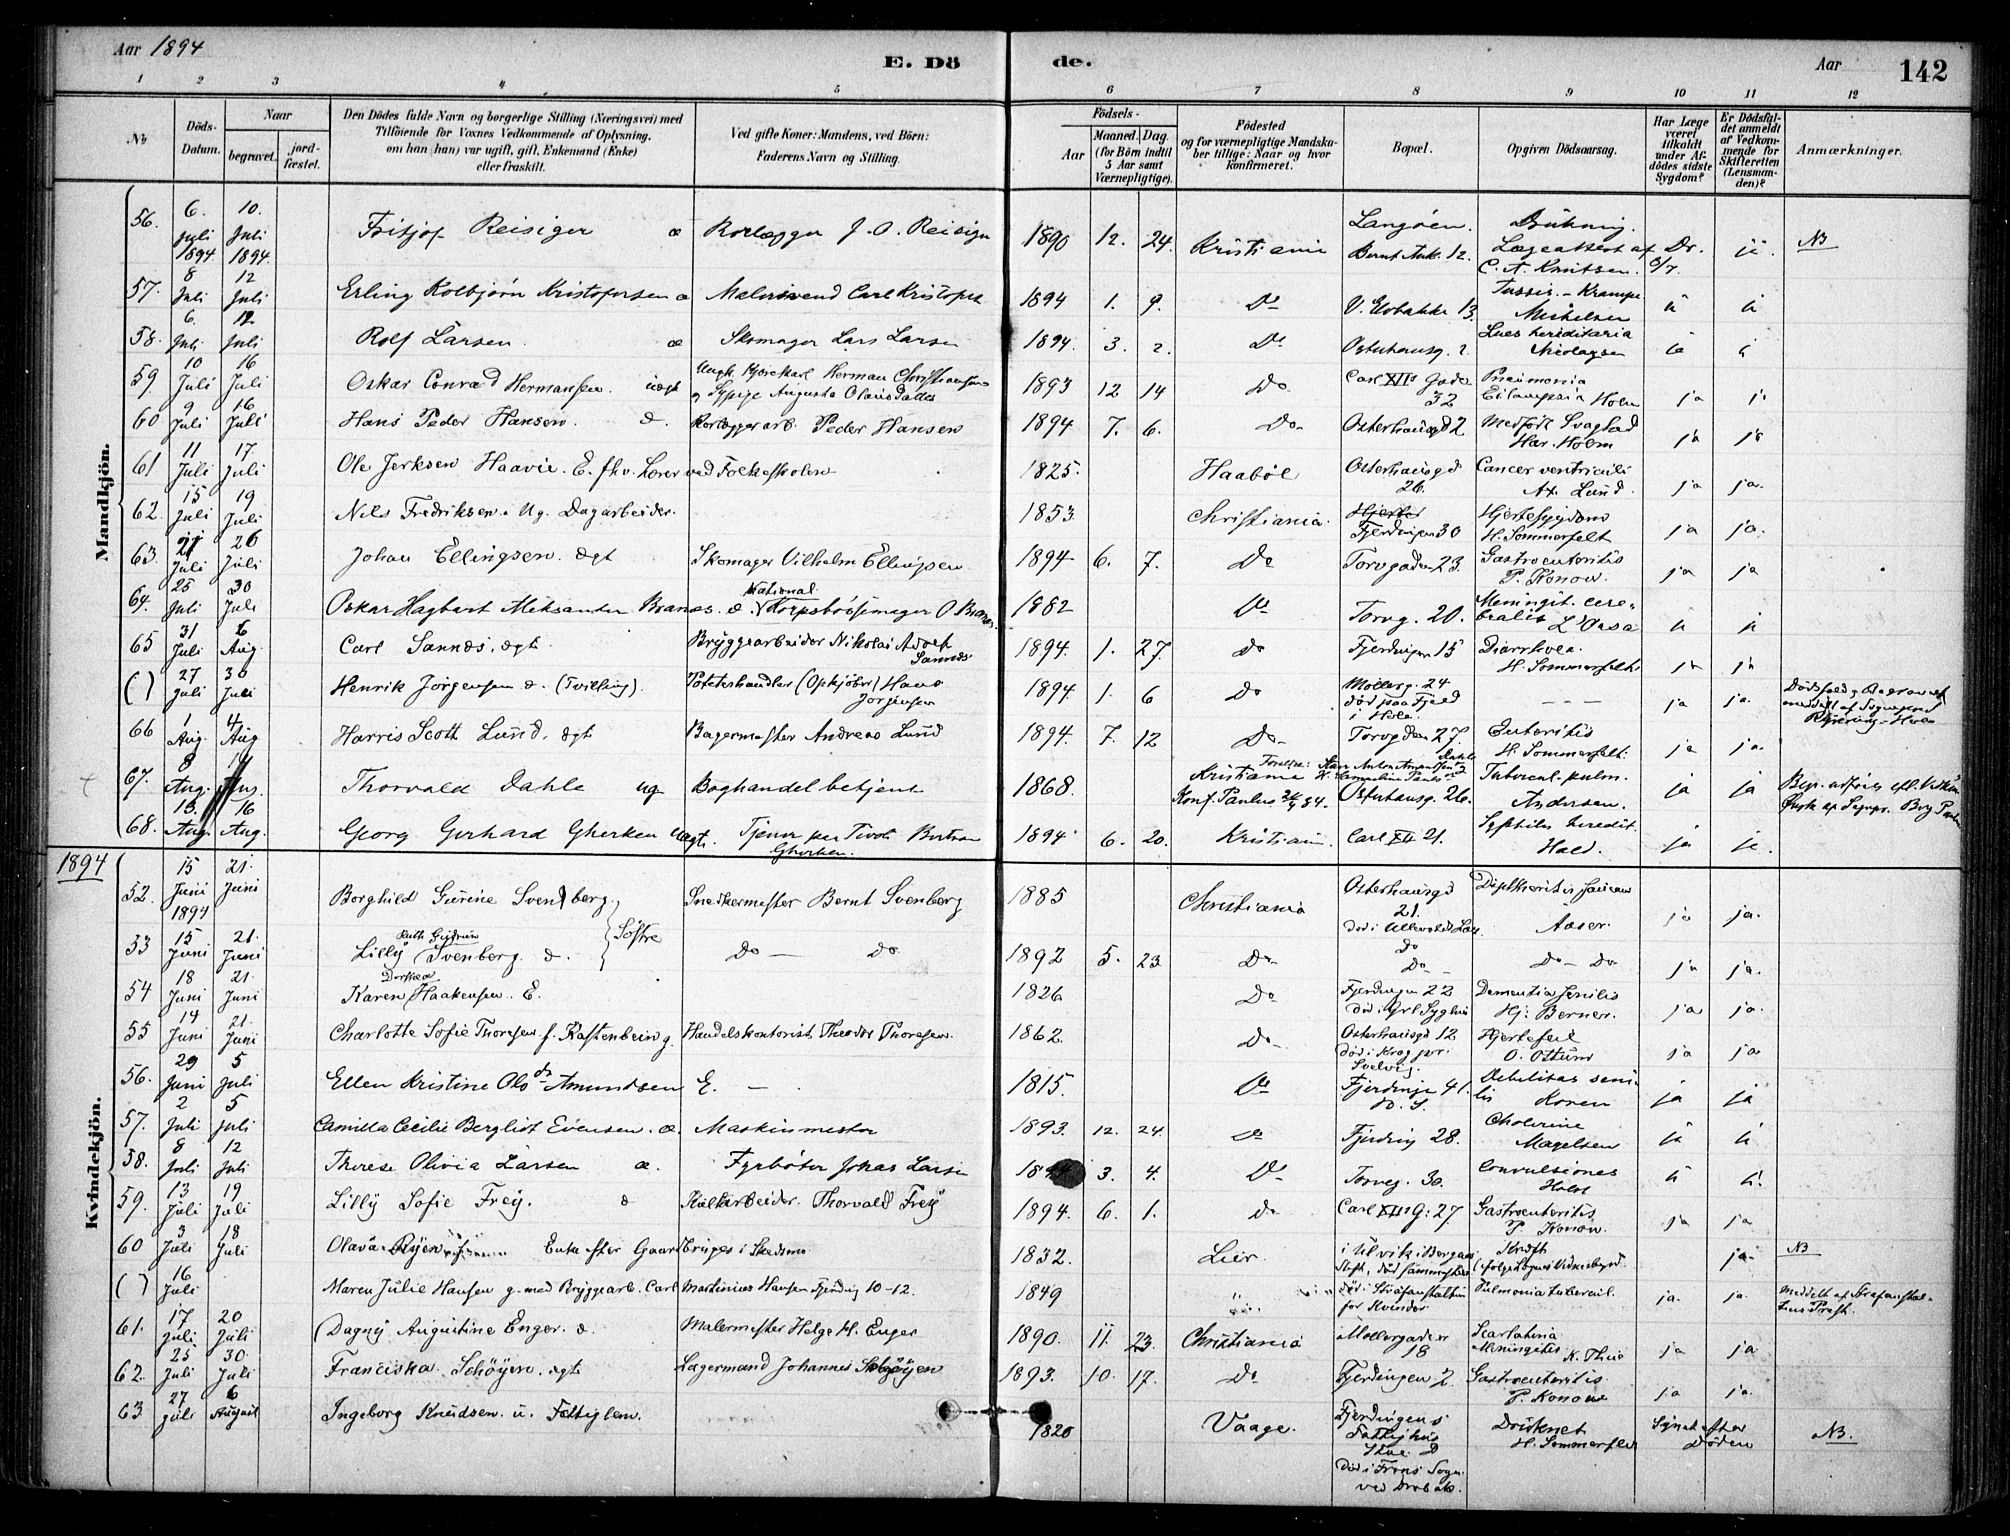 Aar 1894
E. Dö
de.
Aar
142
1 2 3 4 5 6 7 8 9 10 11 12
No
Döds-Datum.
Naar
begravet.
jord-fæstet.
Den Dödes fulde Navn og borgerlige Stilling (Næringsvei) med
Tilföiende for Voxnes Vedkommende af Oplysning,
om han (hun) var ugift, gift, Enkemand (Enke)
eller fraskilt.
Ved gifte Koner: Mandens, ved Börn:
Faderens Navn og Stilling.
Födsels-
Aar
Maaned. Dag.
(for Börn indtil
5 Aar samt
Værnepligtige).
Födested
og for værnepligtige Mandska-
ber tillige: Naar og hvor
konfirmeret.
Bopæl.
Opgiven Dödsaarsag.
Har Læge
været
tilkaldt
under Af-
dödes sidste
Sygdom?
Er Dödsfal-
det anmeldt
af Vedkom-
mende for
Skifteretten
(Lensman-
den)?
Anmærkninger.
Mandkjön.
56. 6. Juli 1894 10. Juli 1894. Fritjof Reisiger æ Rorlægger J. O. Reisiger 1890 12. 24. Kristiania Langöen. Bernt Ank. 12. Drukning. Lægeattest af Dr. C. A. Knutsen. 6/7. NB
57. 8 Juli 12 Juli Erling Kolbjörn Kristofersen æ Malersvend Carl Kristofers 1894 1. 9. Do 13. Tussis. - Krampe Michelsen
58. 6. Juli 12 Juli Rolf Larsen æ Skomager Lars Larsen 1894. 3. 2. Do Osterhausg. 2. Lues hereditaria Nicolaysen
59. 10 Juli 16 Juli Oskar Conrad Hermansen uægt Ungk. Kjörekarl Herman Christiansen og Sypige Augusta Olausdatter 1893 12 14 Do Carl XIIs Gade 32 Pneumonia Eclampsia Holm ja
60 9 Juli 16 Juli Hans Peder Hansen. Rorlæggerarb. Peder Hansen 1894 7. 6. Do Osterhausgd 2 Medfödt Svaghed Har. Holm ja ja
61 11 Juli 17 Juli Ole Jerksen Haavie. E. fhv. Lærer ved Folkeskolen 1825. Haaböl Osterhausgd 26. Cancer ventriculi Ax. Lund. ja ja.
62. 15 Juli 19 Juli Nils Fredriksen. Ug. Dagarbeider. 1853. Christiania. Fjerdingen 30 Hjertesygdom H. Sommerfelt ja ja.
63. 21 Juli 26 Juli Johan Ellingsen. ægt Skomager Vilhelm Ellingsen 1894 6. 7. Do Torvgaden 23. Gastroenteritis P. Konow. ja ja
64. 25 Juli 30 Juli Oskar Hagbart Aleksander Branæs. æ. National Korpsbössemager O Branæs. 1882 Do Torvg. 20. Meningit. cerebralis
65 31 Juli 6 Aug. Carl Sannes, ægte Bryggearbeider Nikolai Adolf Sannes 1894. 1. 27. Do Fjerdingen 15 Diarrhoea. H. Sommerfelt. ja ja
( ) 27 Juli 30 Juli Henrik Jörgensen æ. (Tvilling). Poteterhandler (Opkjöber) Hans Jörgensen 1894 1. 6 Do Möllerg. 24 död paa Fjeld i Hole — — — ja ja.
66 1 Aug 4 Aug Harris Scott Lund. ægt Bagermester Andreas Lund 1894. 7. 12 Do Torvgden 27. Enteritis H. Sommerfelt: ja ja.
67. 8 Aug. Aug. Thorvald Dahle ug Boghandelbetjent 1868. Kristiania Konf. Paulus 84. Osterhausg. 26. Tubercul. pulm. Andersen. ja ja
68. 13. Aug. 16 Aug. Georg Gerhard Gherken uægte. Tjener paa Tivoli Gherken. 1894 6. 20. Kristiania. Carl XII 21. Syphilis heredit. Hald. ja
1894
Kvindekjön.
52. 15 Juni 1894 21. Juni Borghild Gurine Svenberg Söstre Snedkermester Bernt Svenberg 1885 Christiania Osterhausgd 21. död i Ullevolds Laz. Diphtheritis faucium Aaser. ja ja.
53 15 Juni 21. Juni Lilly Ruth Gudrun Svenberg. æ. Do — Do 1892 5. 23 Do Do Do Do — Do ja ja.
54 18 Juni 21. Juni Karen Dorthea Haakensen. E. 1826. Do Fjerdingen 22 Dementia senilis Hj. Berner. ja ja.
55 14 Juni 21. Juni Charlotte Sofie Thoresen f. Kastenbein g. Handelskontorist Theodor Thoresen. 1862. Do Osterhausgd 12 död i Krog pr. Svelvig. Hjertefeil O. Ottum ja ja.
56. 29 Juni 5 Juli Ellen Kristine Olsdr Amundsen E. — 1815. Do Fjerdingen 41. Debilitas senilis Koren ja ja
57. 2 Juli 5 Juli Camilla Cecilie Bergliot Evensen. æ. Maskinmester 1893. 12. 24. Do Fjerding 28. Cholerine Magelsen
58. 8 Juli 12 Juli Therese Olivia Larsen æ. Fyrböter Johas Larsen 3. 4. Do Torvg. 30. Convulsiones Holst
59. 13 Juli 19 Juli Lilly Sofie Frey. Thorvald Frey 1894. 6. 1. Do Carl XIIs G: 27 Gastroenteritis P. Konow. ja ja
60 3 Juli 18 Juli Enke efter Gaardbruger i Skedsmo 1832. Lier Kræft ja. NB
( ) 16 Juli Maren Julie Hansen g. med Bryggearb. Carl Martinius Hansen Fjerding 10-12. 1849 död i Strafanstalten for Kvinder Pulmonia tubercul. ja. ja. Meddelt af Strafanstaltens Prest.
61. 17 Juli 20 Juli Dagny Augustine Enger. æ. Malermester Helge H. Enger 1890. 11. 23. Christiania Möllergaden 18 Scarlatina Meningitis ja ja
62. 25 Juli 30. Juli Franciska Schöyen. ægte Lagermand Johannes Schöyen 1893. 10. 17. Do Fjerdingen 2. Gastroenteritis P. Konow ja ja.
63 27 Juli 6 August Ingeborg Knudsen. u. Fattiglem. 1820 Vaage. Fjerdingens Fattighus Död i Frons Sogn ved Dröbak. Druknet H. Sommerfelt Synet efter Döden NB.